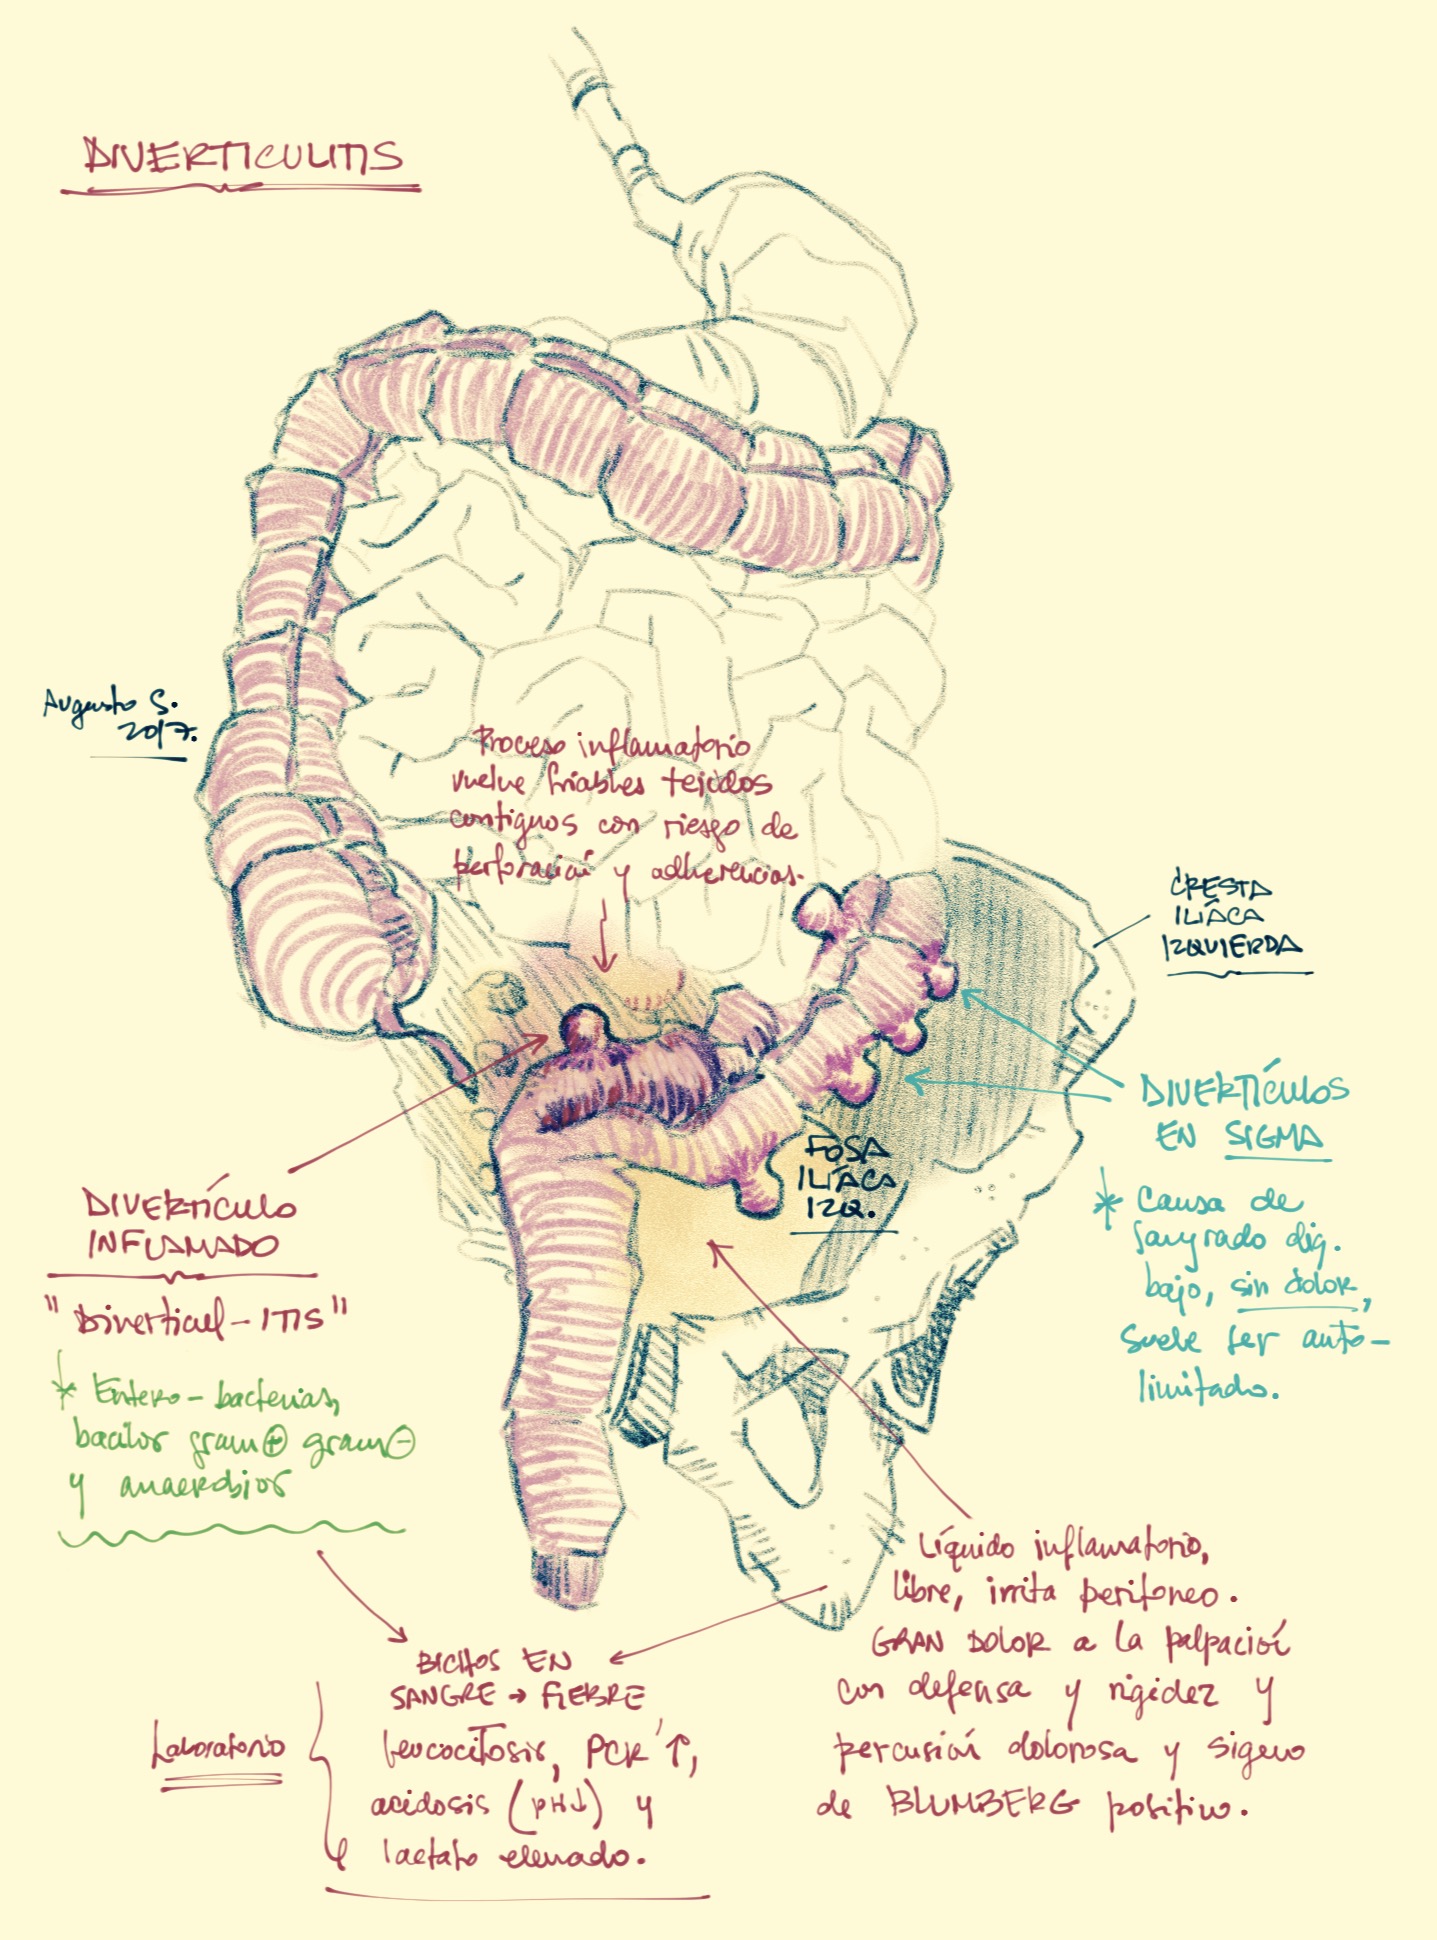 DIVERTICULITIS
Augusto S.
2017.
Proceso inflamatorio
vuelve friables tejidos
contiguos con riesgo de
perforación y adherencias.
CRESTA
ILÍACA
IZQUIERDA
DIVERTÍCULOS
EN SIGMA
* Causa de
sangrado dig.
bajo, sin dolor,
suele ser auto-
limitado.
FOSA
ILÍACA
IZQ.
DIVERTÍCULO
INFLAMADO
"Diverticul-ITIS"
* Entero-bacterias,
bacilos gram⊕ gram⊖
y anaerobios
Líquido inflamatorio,
libre, irrita peritoneo.
GRAN DOLOR a la palpación
con defensa y rigidez y
percusión dolorosa y signo
de BLUMBERG positivo.
BICHOS EN
SANGRE → FIEBRE
Laboratorio
Leucocitosis, PCR ↑,
acidosis (pH↓) y
lactato elevado.